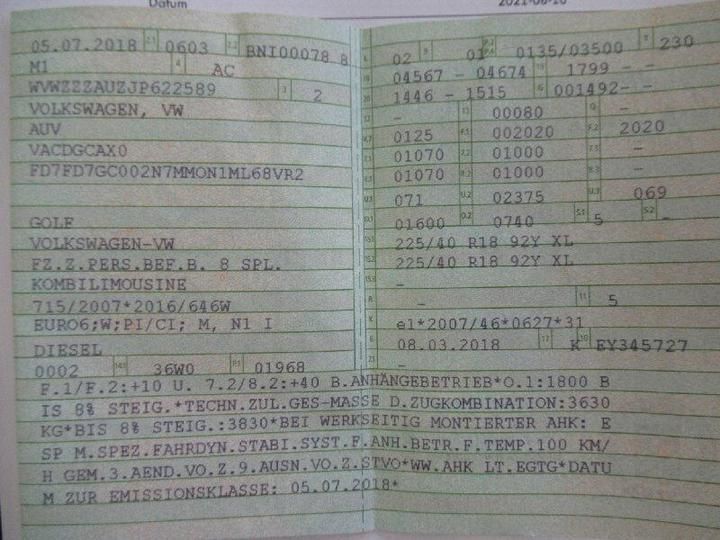 Datum
2021-08-10
05.07.2018 2.1 0603 2.2 BNI00078 8
M1 4 AC
WVWZZZAUZJP622589 3 2
VOLKSWAGEN, VW
AUV
VACDGCAX0
FD7FD7GC002N7MMON1ML68VR2
GOLF
VOLKSWAGEN-VW
FZ.Z.PERS.BEF.B. 8 SPL.
KOMBILIMOUSINE
715/2007*2016/646W
EURO6;W;PI/CI; M, N1 I
DIESEL
0002 14.1 36W0 P.1 01968
02 9 01 P.2 P.4 0135/03500 T 230
18 04567 - 04674 19 1799 - -
20 1446 - 1515 G 001492- -
- 13 00080 Q -
0125 F.1 002020 F.2 2020
7.1 01070 7.2 01000 7.3 -
8.1 01070 8.2 01000 -
U.1 071 U.2 02375 U.3 069
O.1 01600 O.2 0740 S.1 5 S.2 -
15.1 225/40 R18 92Y XL
15.2 225/40 R18 92Y XL
15.3 -
R - 11 5
K e1*2007/46*0627*31
6 08.03.2018 17 K 16 EY345727
21 -
F.1/F.2:+10 U. 7.2/8.2:+40 B.ANHÄNGEBETRIEB*O.1:1800 B
IS 8% STEIG.*TECHN.ZUL.GES-MASSE D.ZUGKOMBINATION:3630
KG*BIS 8% STEIG.:3830*BEI WERKSEITIG MONTIERTER AHK: E
SP M.SPEZ.FAHRDYN.STABI.SYST.F.ANH.BETR.F.TEMP.100 KM/
H GEM.3.AEND.VO.Z.9.AUSN.VO.Z.STVO*WW.AHK LT.EGTG*DATU
M ZUR EMISSIONSKLASSE: 05.07.2018*